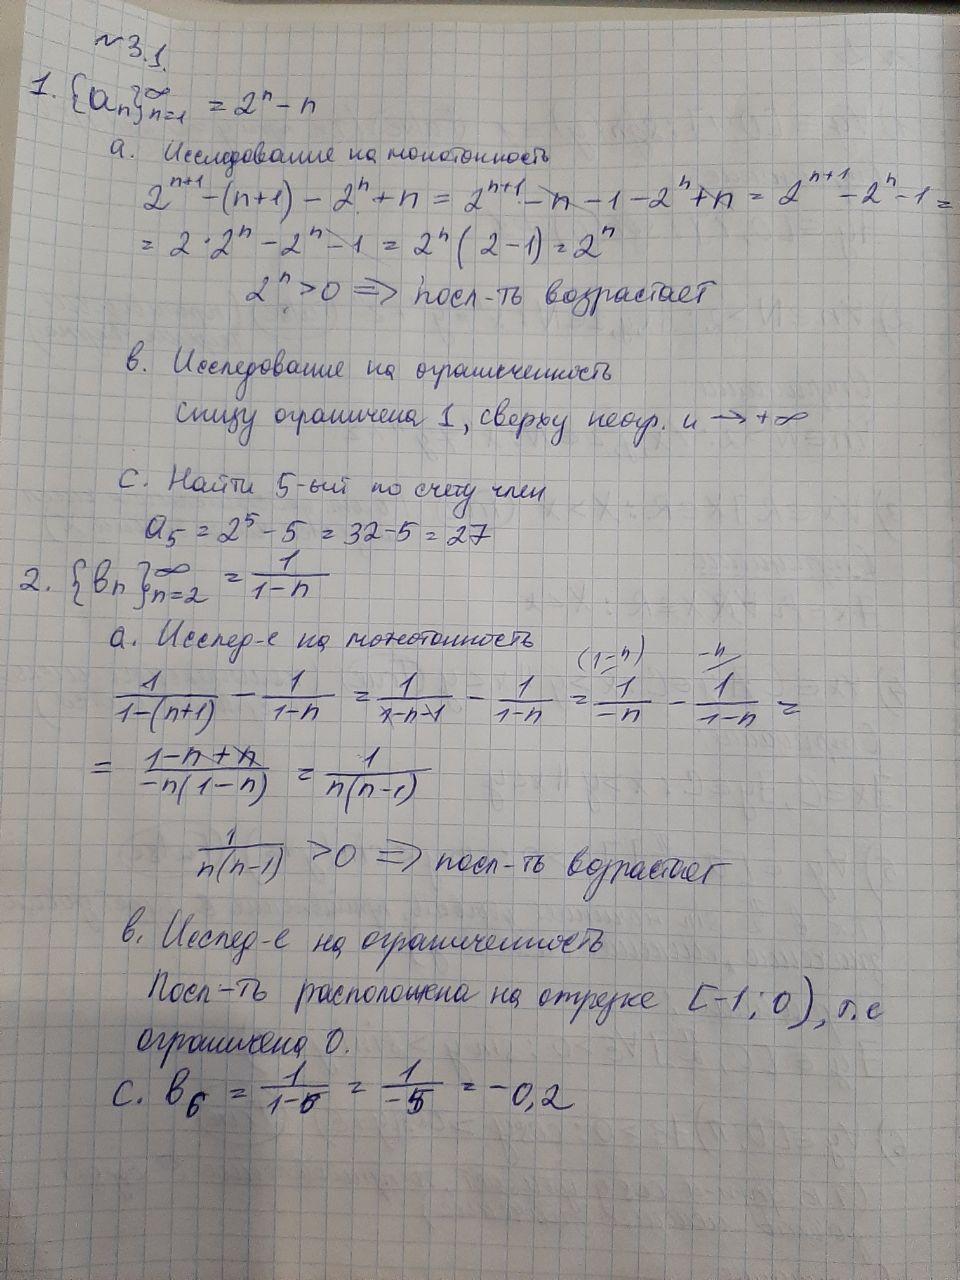 №3.1.
1. {aₙ}∞ₙ₌₁ = 2ⁿ - n
a. Исследование на монотонность
2ⁿ⁺¹ - (n+1) - 2ⁿ + n = 2ⁿ⁺¹ - n - 1 - 2ⁿ + n = 2ⁿ⁺¹ - 2ⁿ - 1 =
= 2·2ⁿ - 2ⁿ - 1 = 2ⁿ(2-1) = 2ⁿ
2ⁿ > 0 => посл-ть возрастает
в. Исследование на ограниченность
снизу ограничена 1, сверху неогр. и → +∞
с. Найти 5-ый по счету член
a₅ = 2⁵ - 5 = 32 - 5 = 27
2. {вₙ}∞ₙ₌₂ = 1/(1-n)
а. Исслед-е на монотонность
(1-n) -n
1/(1-(n+1)) - 1/(1-n) = 1/(1-n-1) - 1/(1-n) = 1/(-n) - 1/(1-n) =
= (1-n+n)/(-n(1-n)) = 1/(n(n-1))
1/(n(n-1)) > 0 => посл-ть возрастает
в. Исслед-е на ограниченность
Посл-ть расположена на отрезке [-1; 0), т.е
ограничена 0.
с. в₆ = 1/(1-6) = 1/(-5) = -0,2